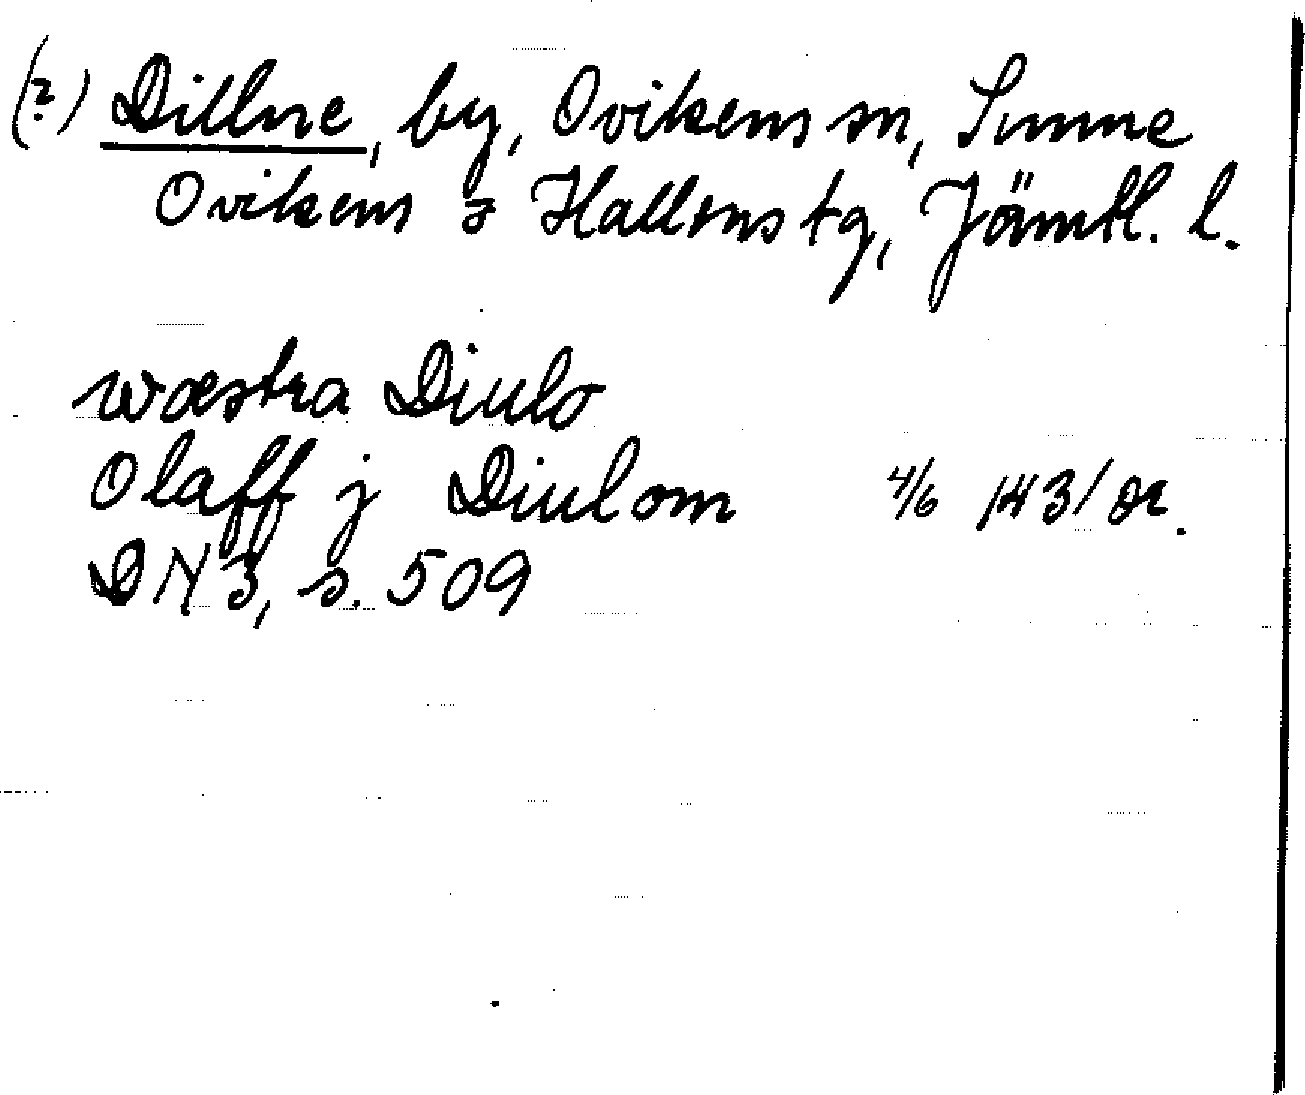 (?) Dillne, by, Ovikens sn, Sunne
Ovikens o Hallens tg, Jämtl. l.
wæstra Diulo
Olaff j Diulom 4/6 1431 or.
DN 3, s. 509